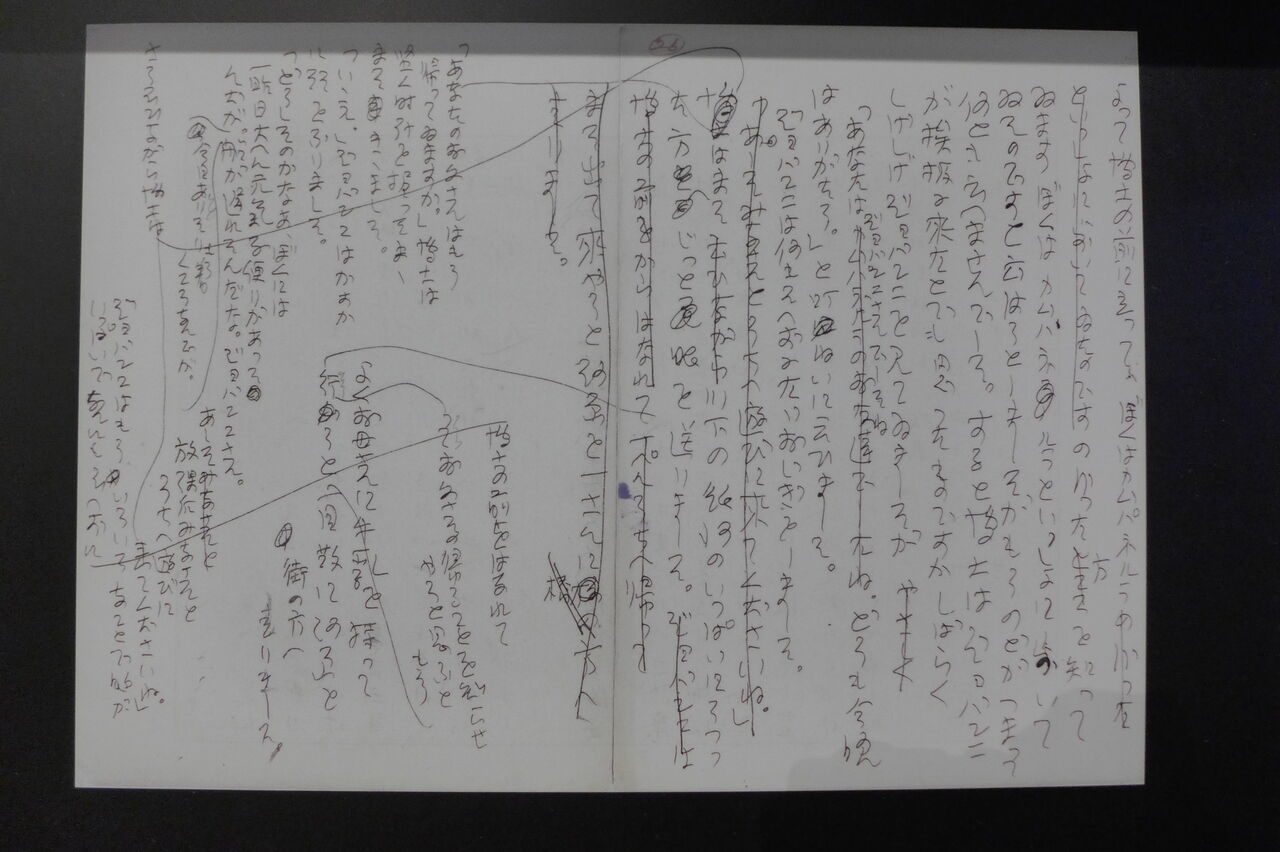 よって博士の前に立って、ぼくはカムパネルラの行った
といっしょにおいてゐたのですの行った方を知って
ゐますぼくはカムパネルラといっしょに歩いて
ゐたのですと云はうとしましたがもうのどがつまって
何とも云へませんでした。すると博士はジョバンニ
が挨拶に来たとでも思ったものですかしばらく
しげしげジョバンニを見てゐましたが やさしく
ジョバンニさんでしたね
「あなたはカムパネルラのお友達でしたね。どうも今晩
はありがたう。」と叮ねいに云ひました。
ジョバンニは何も云へずにたゞおじぎをしました。
あしたみなさんとうちへ遊びに来てくださいね。」
博士はまた云ひながら川下の銀河のいっぱいにうつっ
た方へじっと眼を送りました。ジョバンニは
博士の前をからはなれて
走りました。
橋
「あなたのお父さんはもう
帰ってゐますか。」博士は
堅く時計を握ったまゝ
またきゝました。
「いゝえ。」ジョバンニはかすか
に頭をふりました。
「どうしたのかなあ、ぼくには
一昨日大へん元気な便りがあった
んだが。今日あたりもう着くころなんだが。
船が遅れたんだな。ジョバンニさん。
あしたみなさんと
放課后みなさんと
うちへ遊びに
来てくださいね。」
さう云ひながら博士は
ジョバンニはもういろいろなことで胸が
いっぱいでなんにも云へずに
博士の前をはなれて
早くお父さんの帰ることを知らせ
やうと思ふと
もう
よくお母さんに牛乳を持って
行かうと一目散に
街の方へ
走りました。